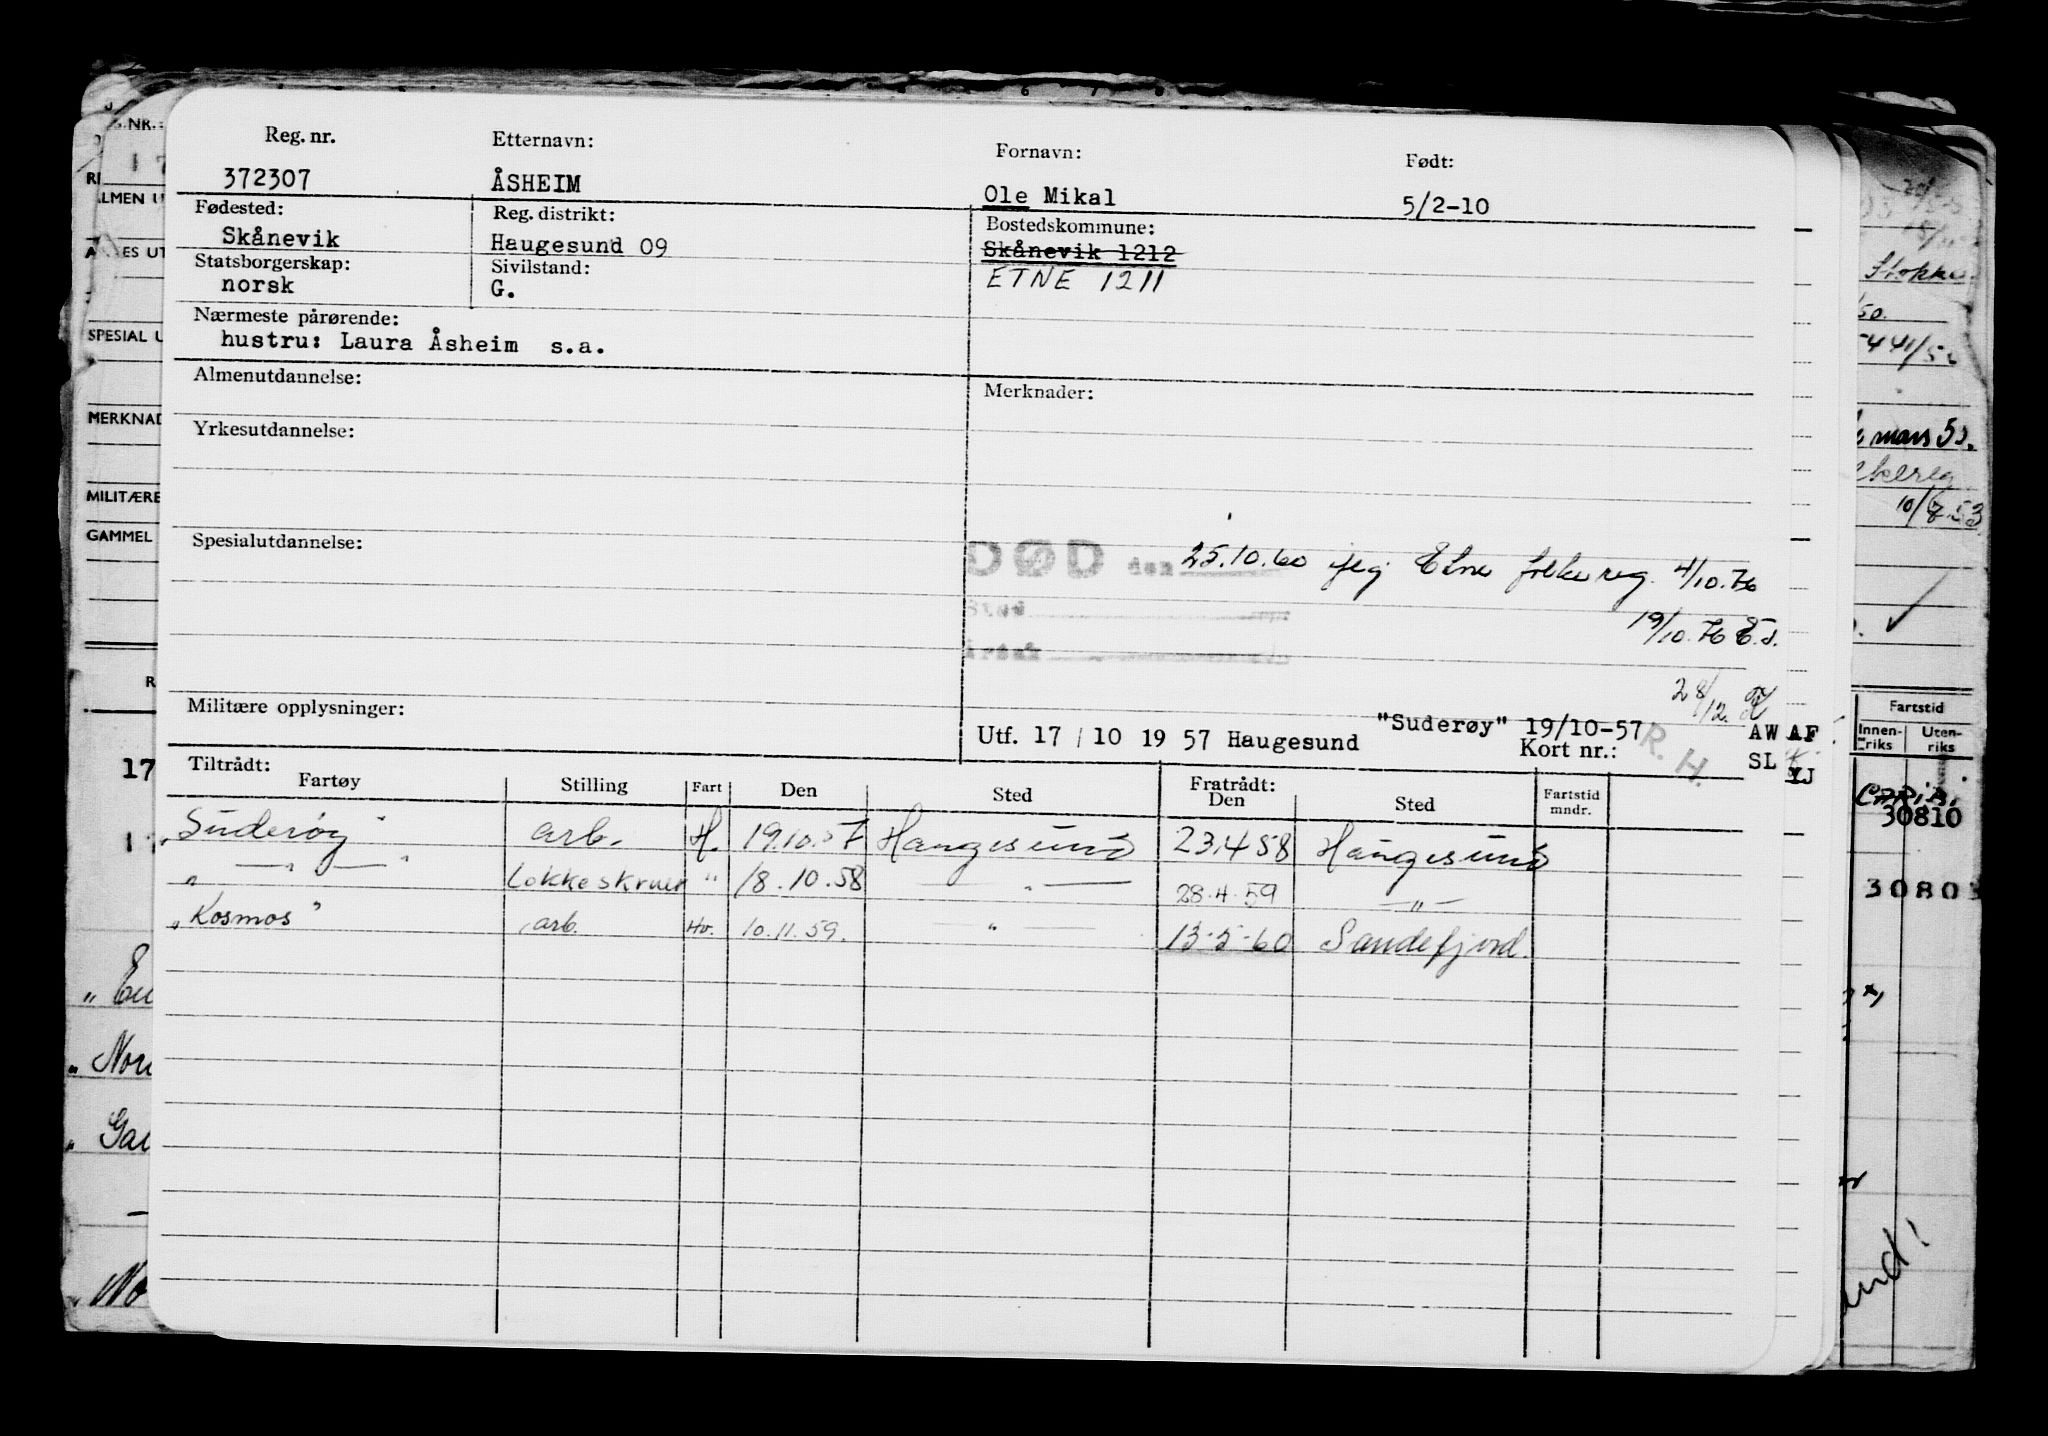 Reg. nr. Etternavn: Fornavn: Født:
372307 ÅSHEIM Ole Mikal 5/2-10
Fødested: Reg. distrikt: Bostedskommune:
Skånevik Haugesund 09 Skånevik 1212
Statsborgerskap: Sivilstand: ETNE 1211
norsk G.
Nærmeste pårørende:
hustru: Laura Åsheim s.a.
Almenutdannelse: Merknader:
Yrkesutdannelse:
Spesialutdannelse: DØD den 25.10.60 iflg. Etne folkereg. 4/10.76
Sted
19/10.76
Årsak
28/12.
Militære opplysninger: "Suderøy" 19/10-57
Utf. 17/10 1957 Haugesund Kort nr.: R. H.
AW AF
SL YJ
Tiltrådt: Fratrådt:
Fartøy Stilling Fart Den Sted Den Sted Fartstid mndr.
"Suderøy" arb. H. 19.10.57 Haugesund 23.4.58 Haugesund
" — " — " Lokkeskruer " 18.10.58 — " — 28.4.59 — " —
"Kosmos" arb. Hv. 10.11.59. " — 13-5-60 Sandefjord.
S.NR.:
ALMEN U
SPESIAL U
MERKNAD
MILITÆRE
GAMMEL
17
mars 53.
10/8.53
Fartstid
Innen-riks Uten-riks
30810
3080